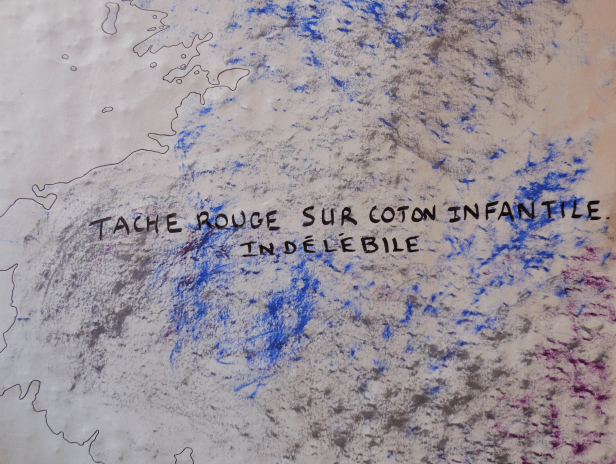 TACHE ROUGE SUR COTON INFANTILE.
INDÉLÉBILE